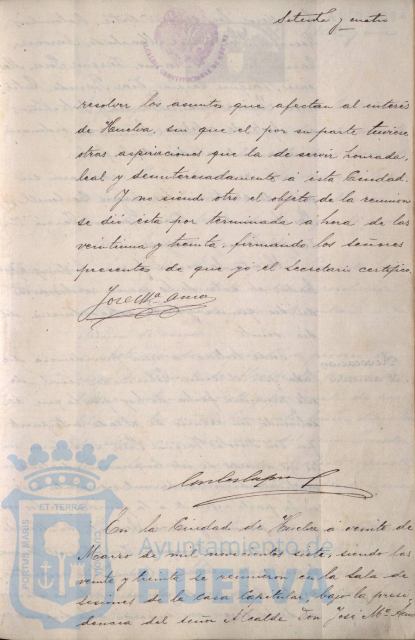 Setenta y cuatro
resolver los asuntos que afectan al interés
de Huelva, sin que el por su parte tuviese
otras aspiraciones que la de servir honrada,
leal y desinteresadamente á esta Ciudad.
Y no siendo otro el objeto de la reunion
se dió esta por terminada a hora de las
veintiuna y treinta, firmando los señores
presentes de que yo el Secretario certifico.
José Mª
En la Ciudad de Huelva á veinte de
Marzo de mil novecientos siete, siendo las
veinte y treinta se reunieron en la Sala de
sesiones de la casa Capitular, bajo la presi
dencia del señor Alcalde Don José Mª
PORTUS MARIS
ET TERRÆ
CUSTODIA
Ayuntamiento de
HUELVA